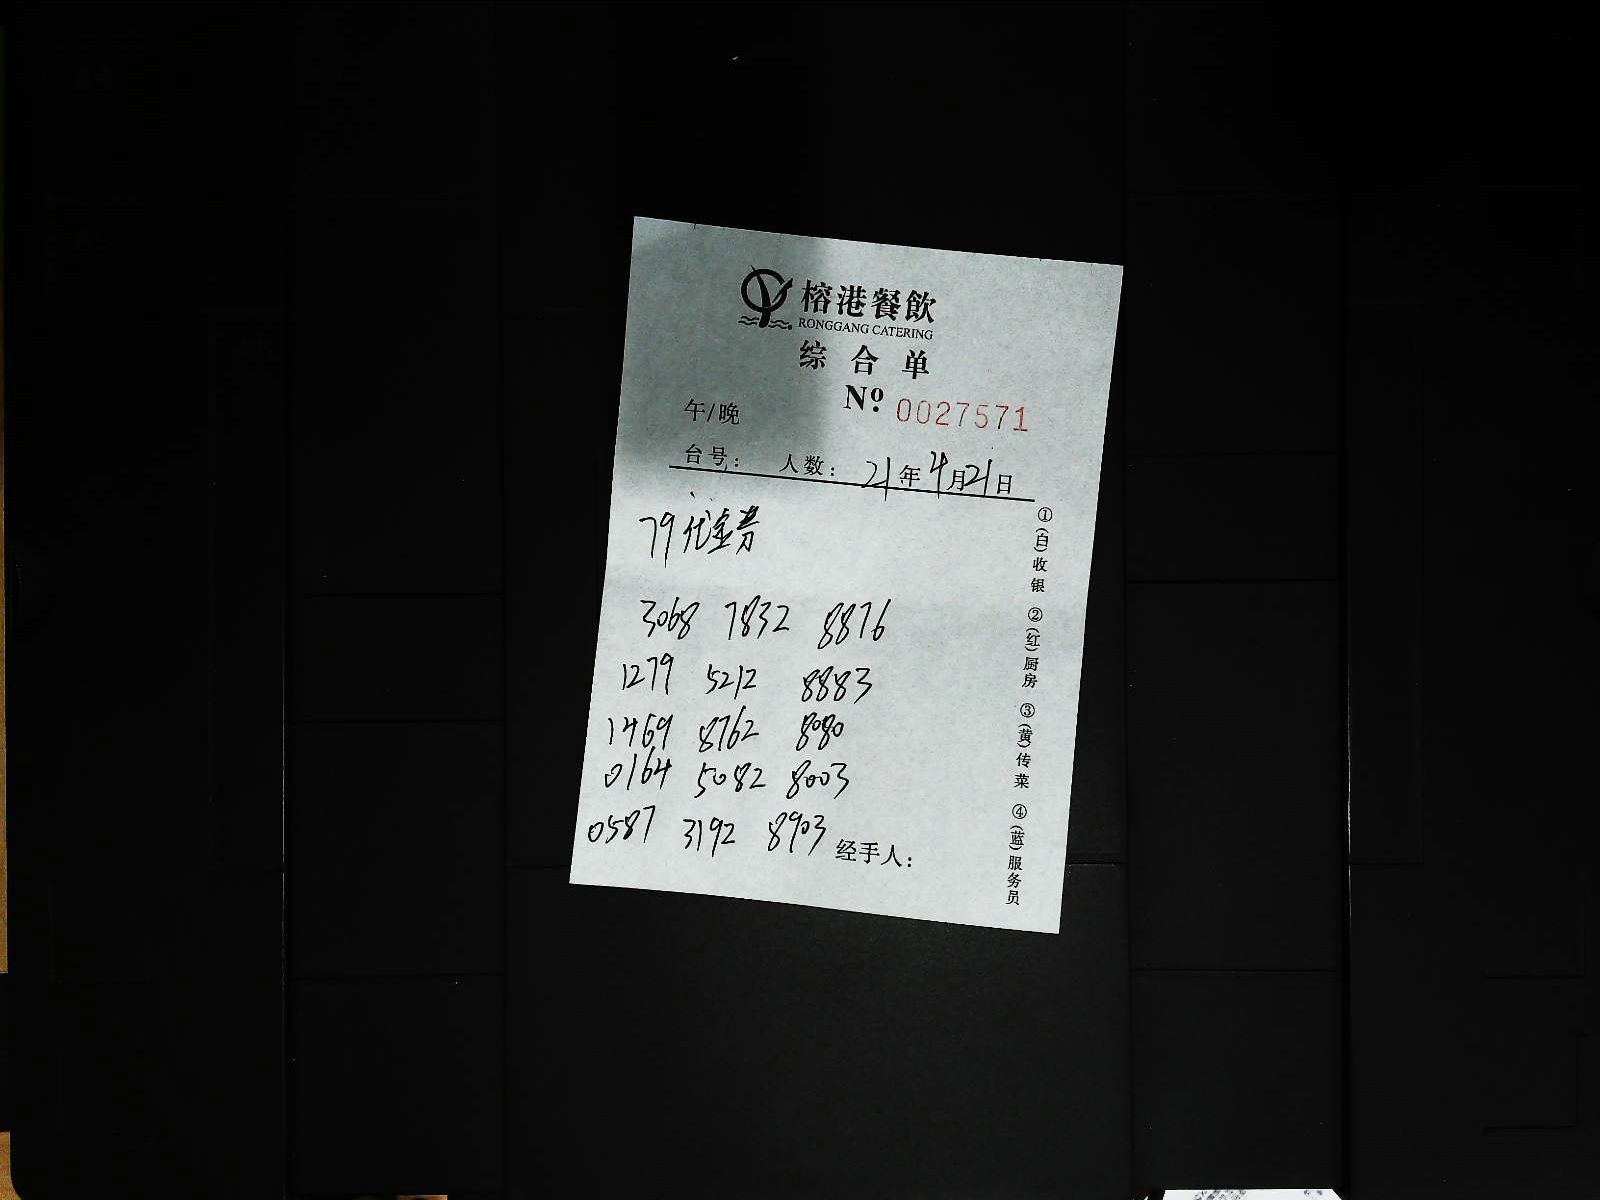 榕港餐飲
RONGGANG CATERING
综合单
午/晚
No. 0027571
台号： 人数： 21年4月21日
79代金券
3068 7832 8876
1279 5212 8883
1469 8762 8080
0164 5082 8003
0587 3192 8903
经手人：
①(白)收银 ②(红)厨房 ③(黄)传菜 ④(蓝)服务员